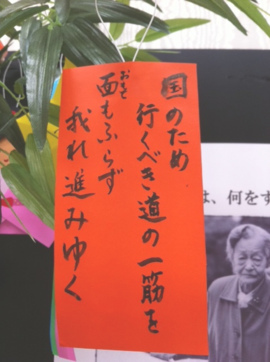 国のため
行くべき道の一筋を
面もふらず
我れ進みゆく
は、何をす